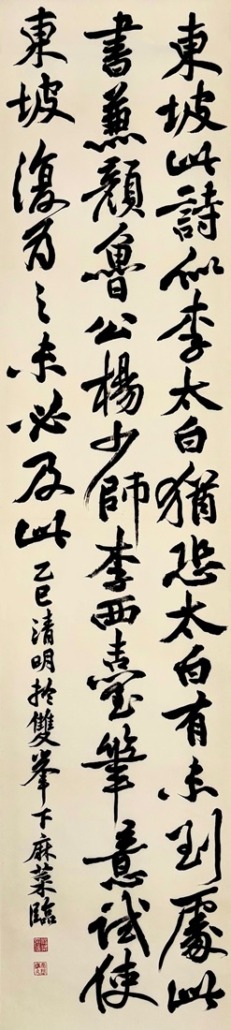 東坡此詩似李太白猶恐太白有未到處此
書兼顏魯公楊少師李西臺筆意試使
東坡復為之未必及此
乙巳清明於雙峯下麻菜臨